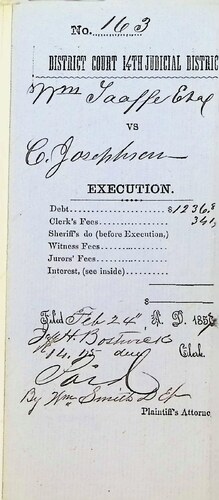 No. 163
DISTRICT COURT 14TH JUDICIAL DISTRIC
Wm Taaffe Etal
VS
C. Josephson
EXECUTION.
Debt $1236.8
Clerk's Fees 34
Sheriff's do (before Execution,)
Witness Fees
Jurors' Fees
Interest, (see inside)
$
Filed Feb 24" A. D. 185
H. Bostwick
Clerk.
By Wm Smith Dep
Plaintiff's Attorne